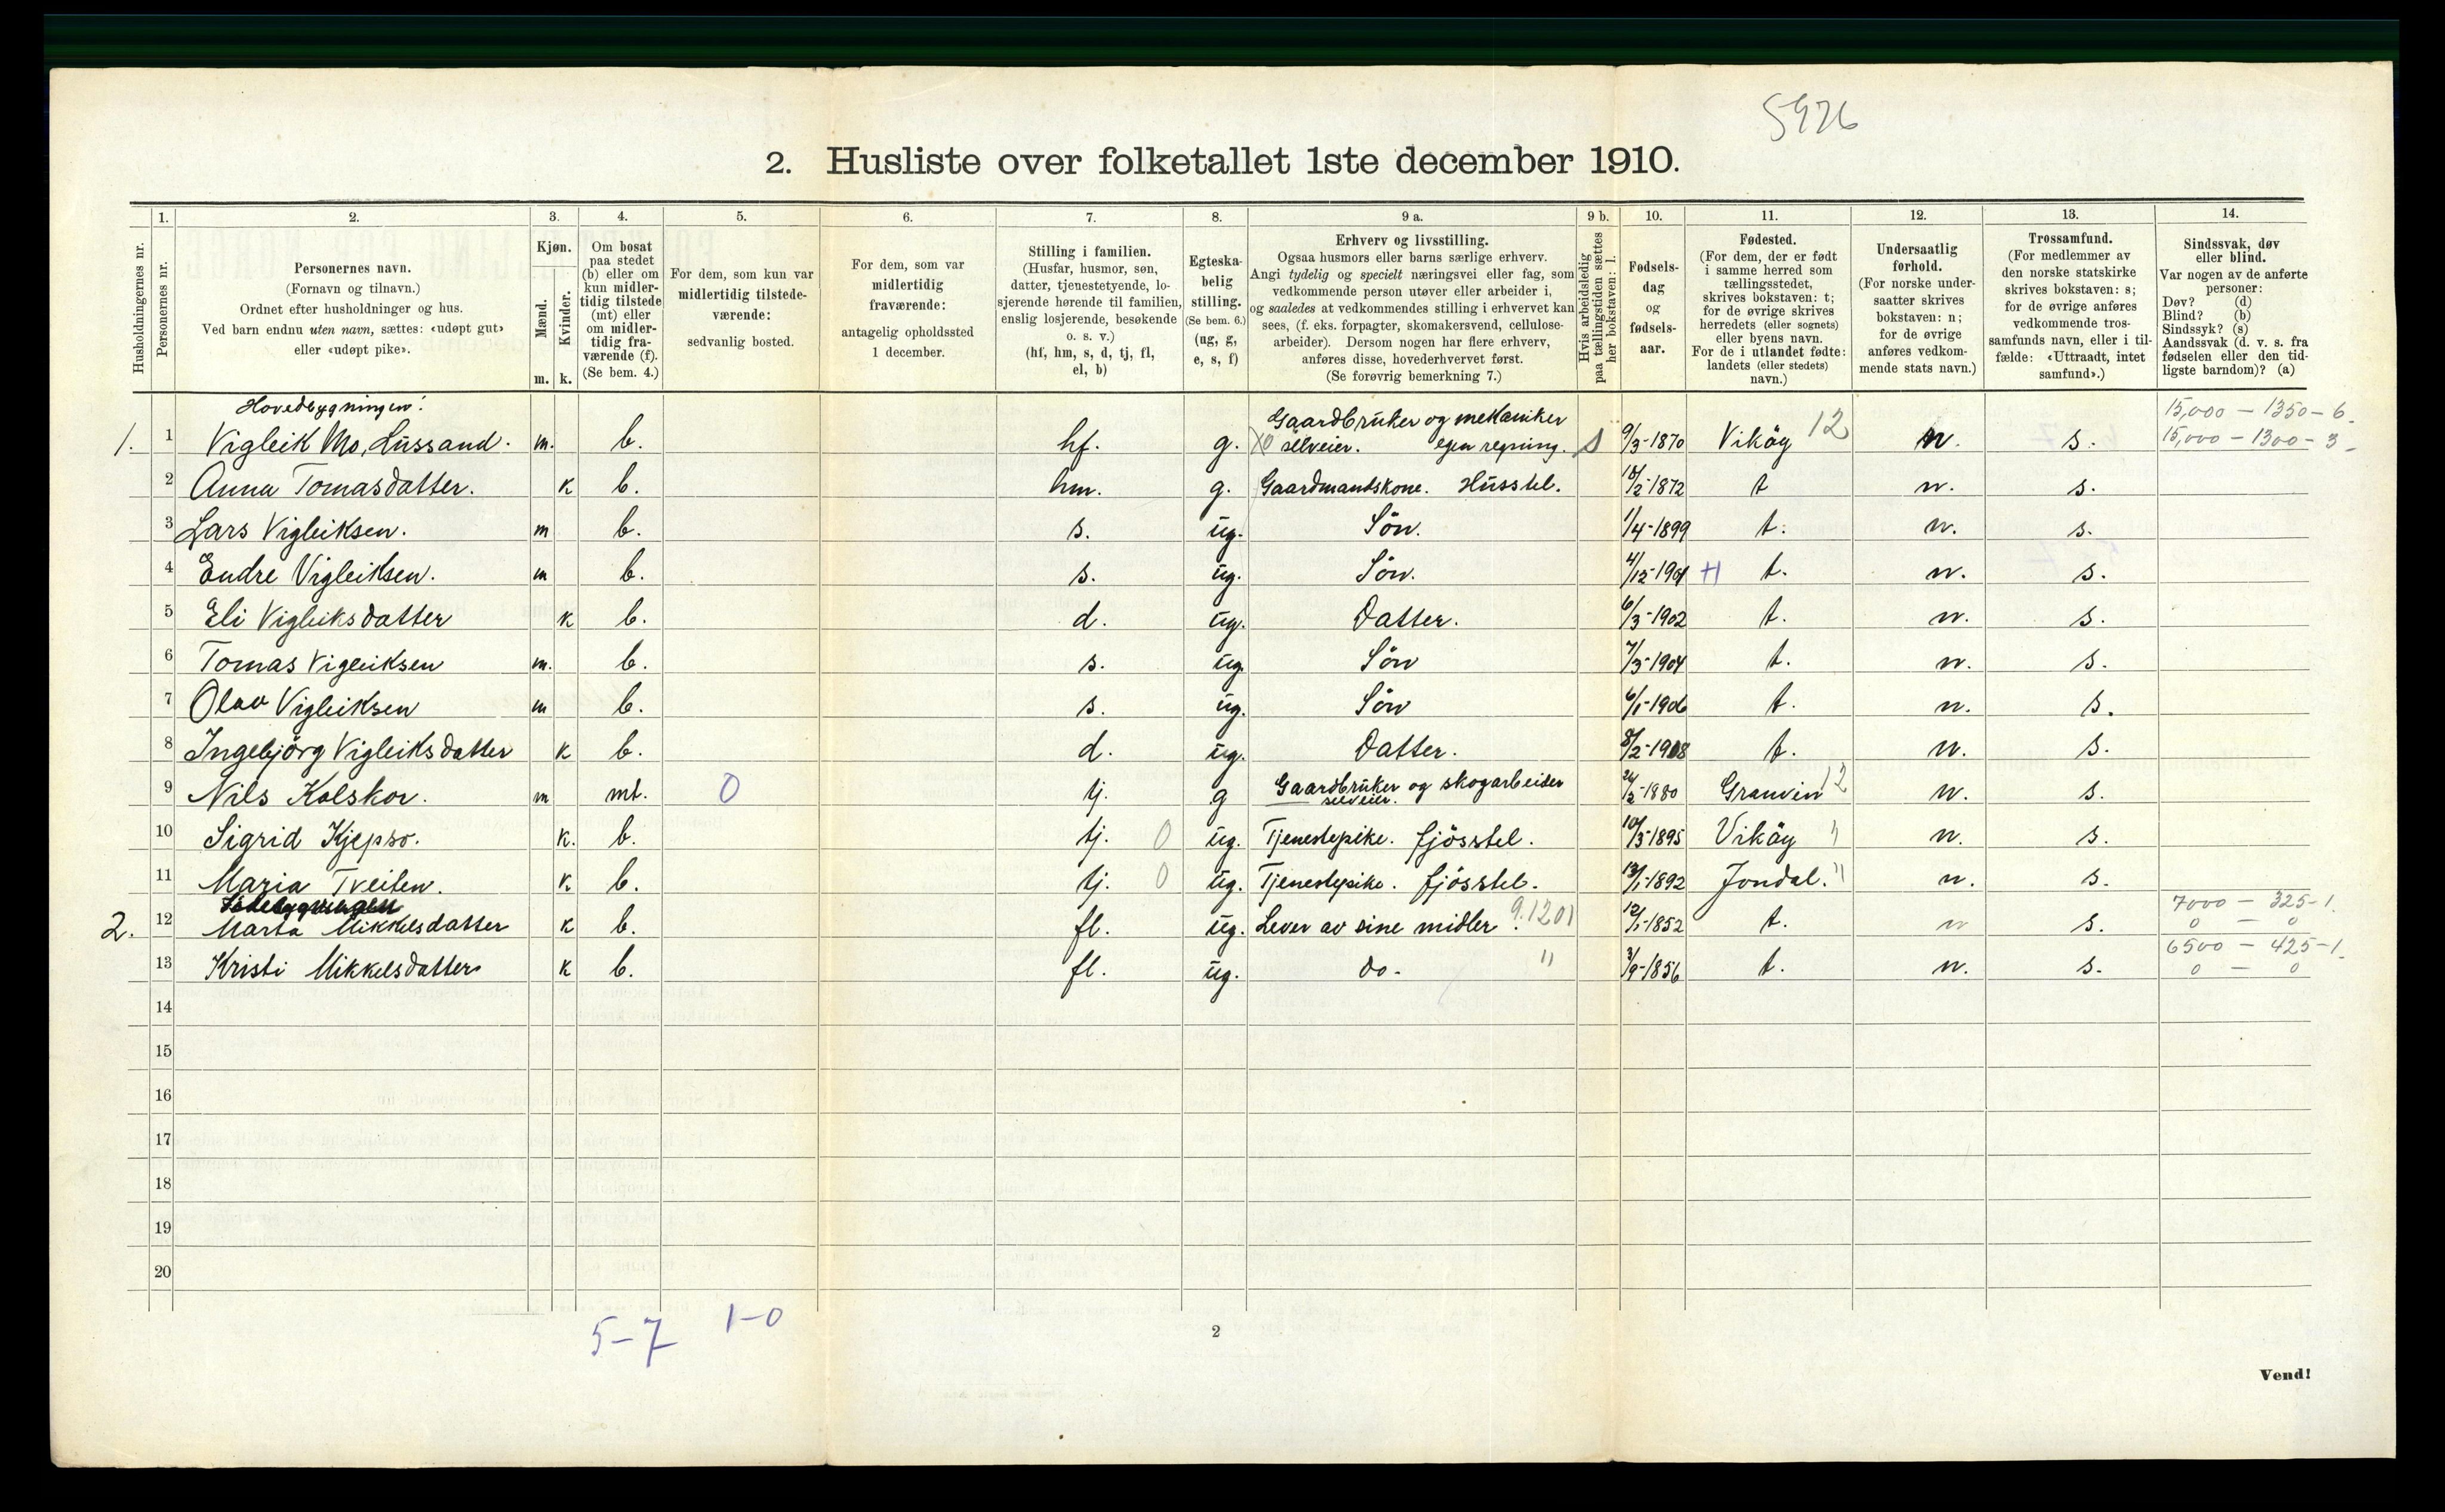 5926
2. Husliste over folketallet 1ste december 1910.
Husholdningernes nr.
1. Personernes nr.
2. Personernes navn.
(Fornavn og tilnavn.)
Ordnet efter husholdninger og hus.
Ved barn endnu uten navn, sættes: «udøpt gut»
eller «udøpt pike».
3. Kjøn.
Mænd. m.
Kvinder. k.
4. Om bosat
paa stedet
(b) eller om
kun midler-
tidig tilstede
(mt) eller
om midler-
tidig fra-
værende (f).
(Se bem. 4.)
5. For dem, som kun var
midlertidig tilstede-
værende:
sedvanlig bosted.
6. For dem, som var
midlertidig
fraværende:
antagelig opholdssted
1 december.
7. Stilling i familien.
(Husfar, husmor, søn,
datter, tjenestetyende, lo-
sjerende hørende til familien,
enslig losjerende, besøkende
o. s. v.)
(hf, hm, s, d, tj, fl,
el, b)
8. Egteska-
belig
stilling.
(Se bem. 6.)
(ug, g,
e, s, f)
9 a. Erhverv og livsstilling.
Ogsaa husmors eller barns særlige erhverv.
Angi tydelig og specielt næringsvei eller fag, som
vedkommende person utøver eller arbeider i,
og saaledes at vedkommendes stilling i erhvervet kan
sees, (f. eks. forpagter, skomakersvend, cellulose-
arbeider). Dersom nogen har flere erhverv,
anføres disse, hovederhvervet først.
(Se forøvrig bemerkning 7.)
9 b. Hvis arbeidsledig
paa tællingstiden sættes
her bokstaven: l.
10. Fødsels-
dag
og
fødsels-
aar.
11. Fødested.
(For dem, der er født
i samme herred som
tællingsstedet,
skrives bokstaven: t;
for de øvrige skrives
herredets (eller sognets)
eller byens navn.
For de i utlandet fødte:
landets (eller stedets)
navn.)
12. Undersaatlig
forhold.
(For norske under-
saatter skrives
bokstaven: n;
for de øvrige
anføres vedkom-
mende stats navn.)
13. Trossamfund.
(For medlemmer av
den norske statskirke
skrives bokstaven: s;
for de øvrige anføres
vedkommende tros-
samfunds navn, eller i til-
fælde: «Uttraadt, intet
samfund».)
14. Sindssvak, døv
eller blind.
Var nogen av de anførte
personer:
Døv? (d)
Blind? (b)
Sindssyk? (s)
Aandssvak (d. v. s. fra
fødselen eller den tid-
ligste barndom)? (a)
Hovedbygningen: Gaardbruker og mekaniker 15,000 - 1350 - 6
1. 1 Vigleik Mo, Lussand. m. b. hf. g. selveier. egen regning. s 9/3-1870 Vikøy 12 n. s. 15,000 - 1300 - 3
2 Anna Tomasdatter. k b. hm. g. Gaardmandskone. Husstel. 18/2-1872 t n. s.
3 Lars Vigleiksen. m b. s. ug. Søn. 1/4-1899 t. n. s.
4 Endre Vigleiksen. m b. s. ug. Søn. 4/12-1901 t. n. s.
5 Eli Vigleiksdatter k b. d. ug. Datter. 6/3-1902 t. n. s.
6 Tomas Vigleiksen m. b. s. ug. Søn 7/3-1904 t. n. s.
7 Olav Vigleiksen m b. s. ug. Søn 6/1-1906 t. n. s.
8 Ingebjörg Vigleiksdatter k b. d. ug. Datter. 8/2-1908 t. n. s.
9 Nils Kolskor. m mt. 0 tj. g Gaardbruker og skogarbeider selveier. 24/2-1880 Granvin 12 n. s.
10 Sigrid Kjepso. k. b. tj. 0 ug. Tjenestepike. fjösstel. 10/3-1895 Vikøy " n. s.
11 Maria Tveiten. k b. tj. 0 ug. Tjenestepike. fjösstel. 13/1-1892 Jondal. " n. s.
Sidebygningen 7000 - 325-1.
2. 12 Marta Mikkelsdatter k b. fl. ug. Lever av sine midler. 9.1201 12/1-1852 t. n s. 0 - 0
6500 - 425-1.
13 Kristi Mikkelsdatter k b. fl. ug. do. " 3/9-1856 t. n. s. 0 - 0
14
15
16
17
18
19
20
5-7 1-0
2
Vend!